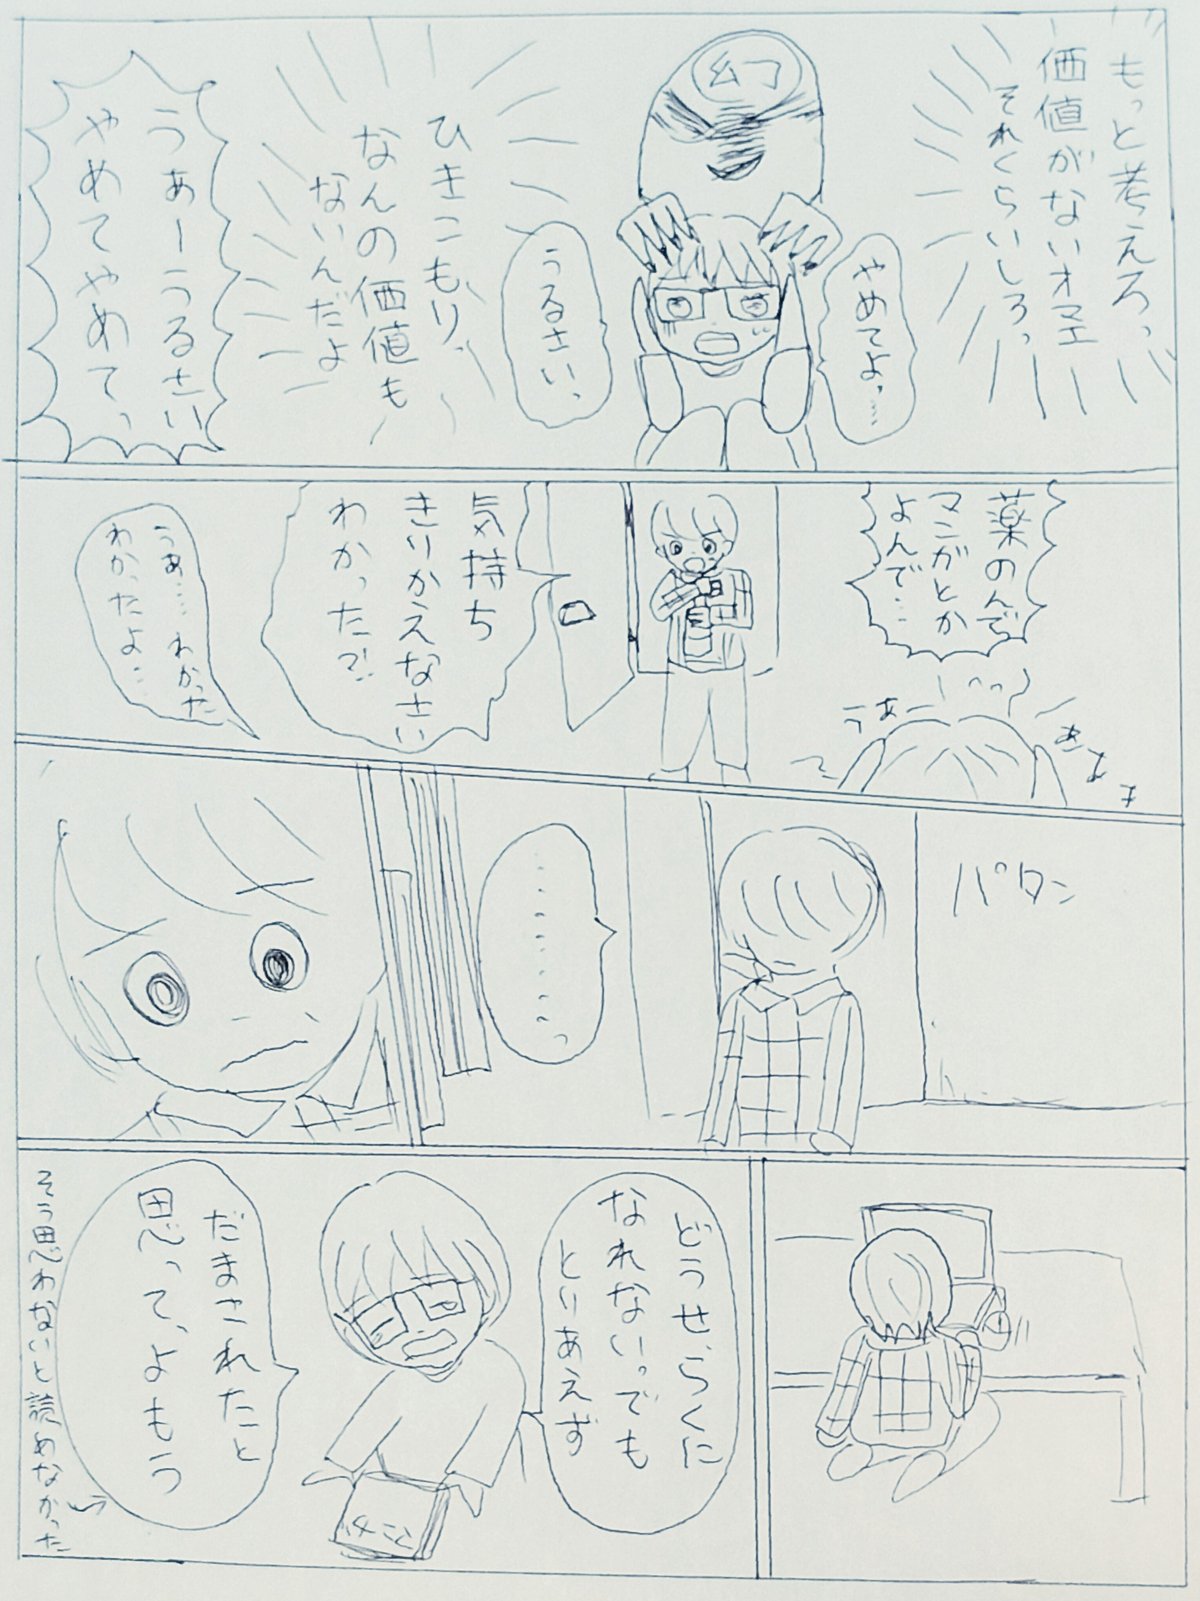 もっと考えろっ
価値がないオマエ
それくらいしろっ
幻
やめてよ……
うるさい、
ひきこもり、
なんの価値も
ないんだよ
うぁーうるさい
やめてやめて、
薬のんで
マンガとか
よんで…
うあー
あぁぁ
気持ち
きりかえなさい
わかった?!
うぁ……わかった
わかったよ…
パタン
…………っ
どうせ、らくに
なれないっでも
とりあえず
だまされたと
思って、よもう
そう思わないと読めなかった